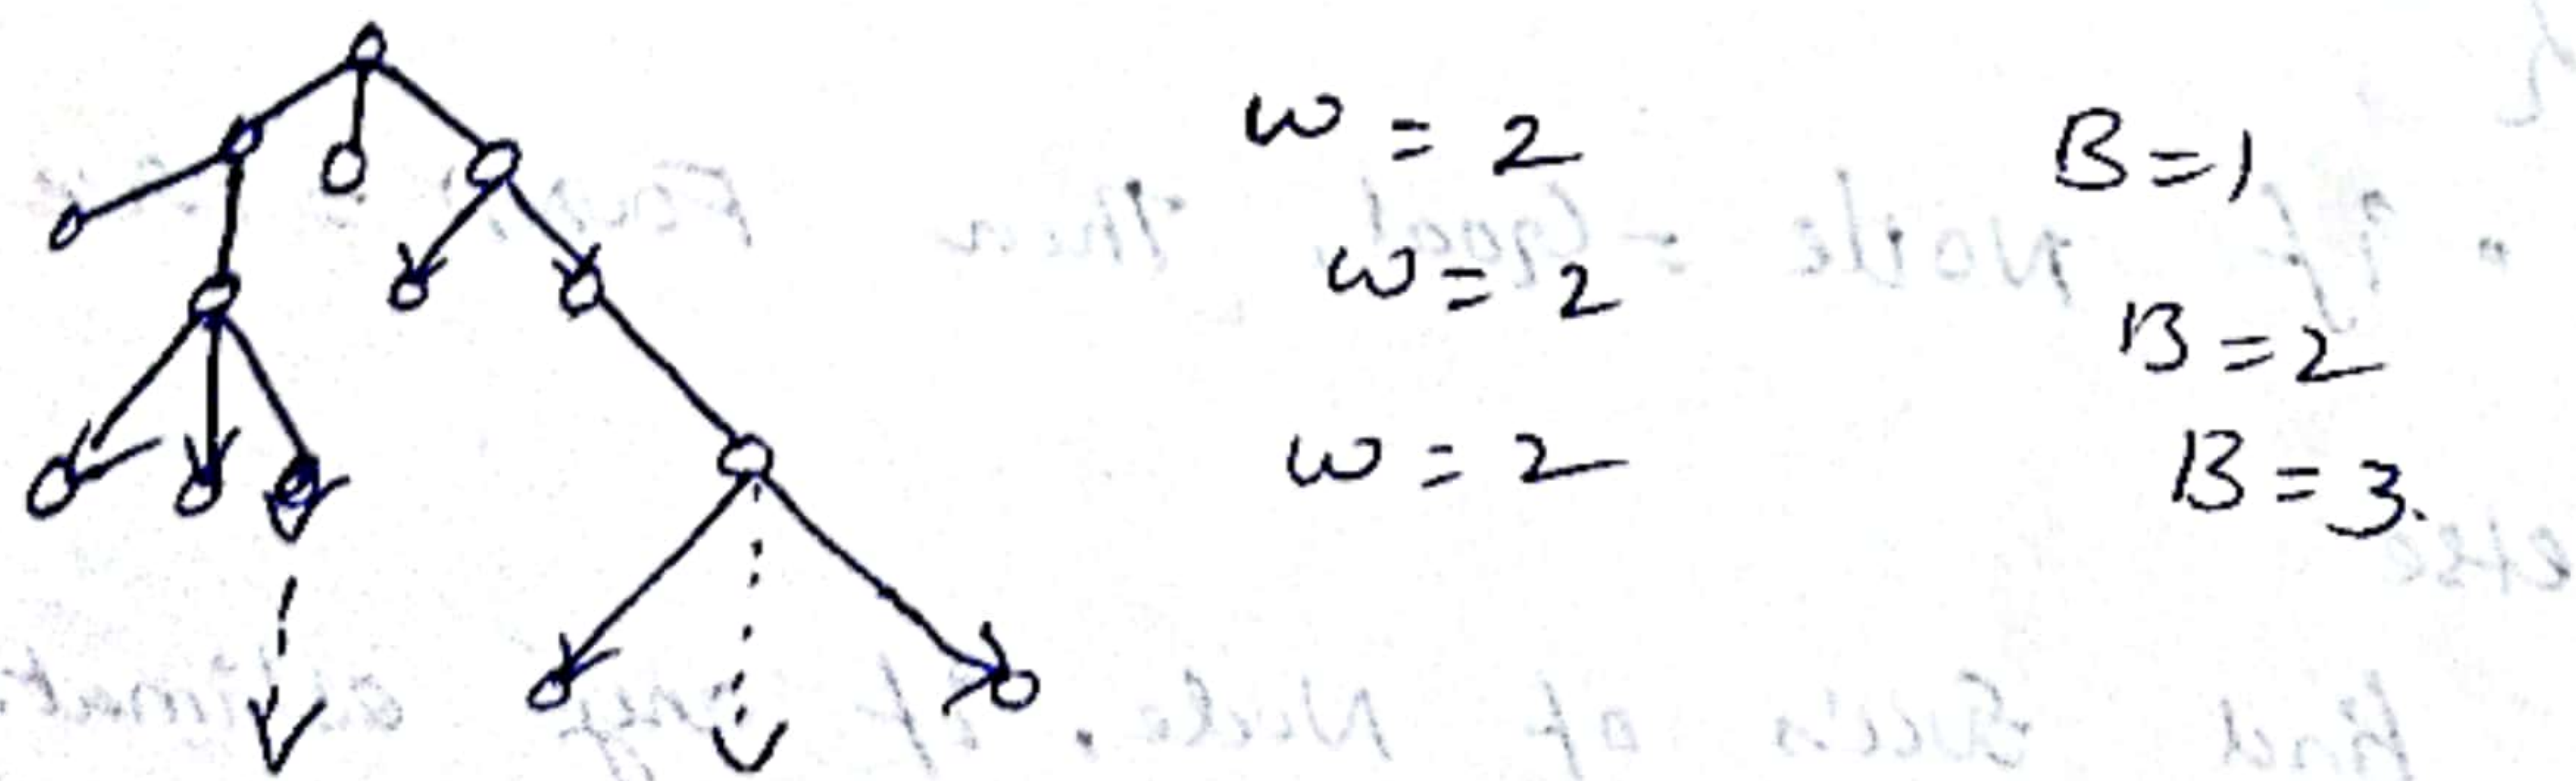 w = 2 B = 1
w = 2 B = 2
w = 2 B = 3.